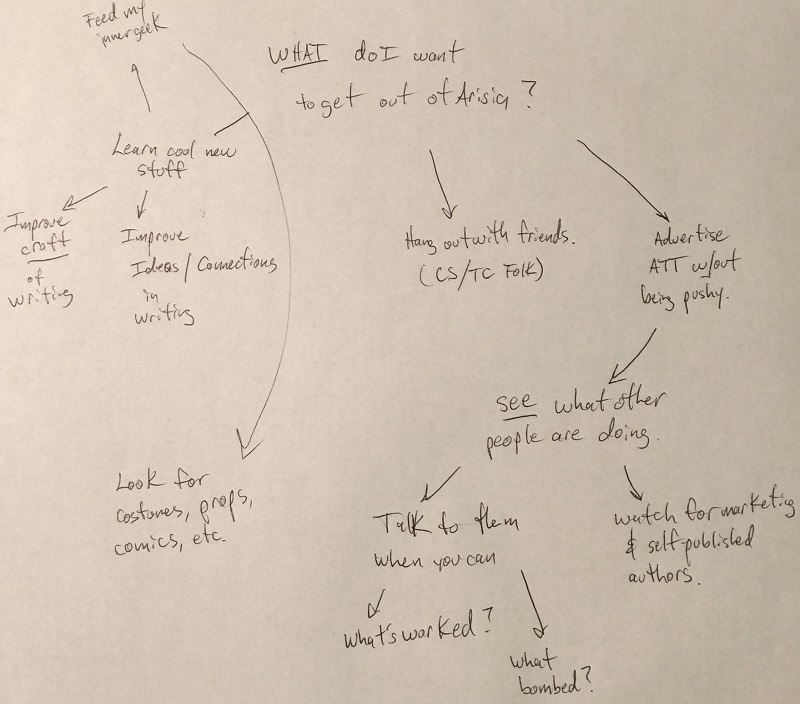 Feed my
inner geek
WHAT do I want
to get out of Arisia?
Learn cool new
stuff
Improve
craft
of
writing
Improve
Ideas/Connections
in
writing
Hang out with friends.
(CS/TC Folk)
Advertise
ATT w/out
being pushy.
see what other
people are doing.
Look for
costumes, props,
comics, etc.
Talk to them
when you can
watch for marketing
& self-published
authors.
what's worked?
what
bombed?